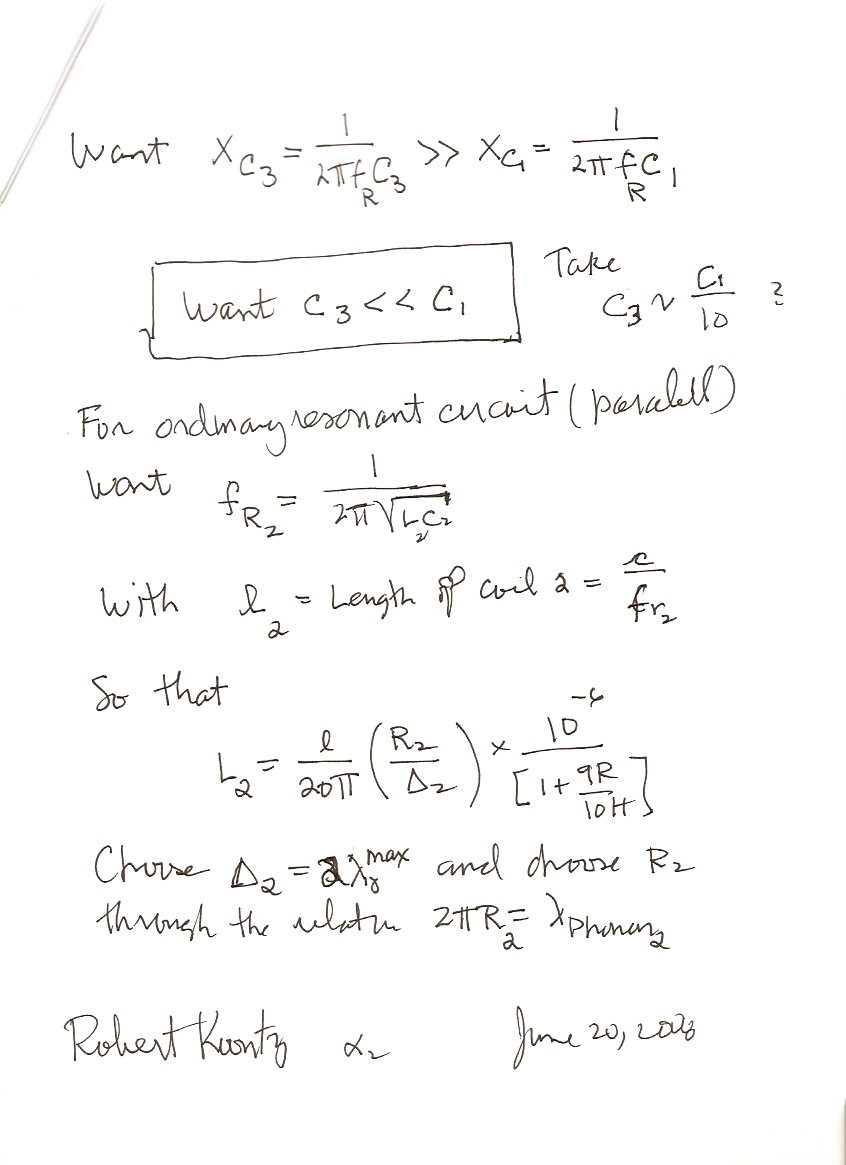 Want X_C3 = 1/(2πf_R C3) >> X_C1 = 1/(2πf_R C1)
Want C3 << C1
Take C3 ~ C1/10 ?
For ordinary resonant circuit (paralell)
Want f_R2 = 1/(2π√(L2C2))
With l_2 = Length of coil 2 = c/f_r2
So that
L2 = l/20π (R2/Δ2) × 10^-6/[1+9R/10H]
Choose Δ2 = 2λ_γ^max and choose R2
through the relation 2πR2 = λ_Phonon2
Robert Koontz α2 June 20, 2008